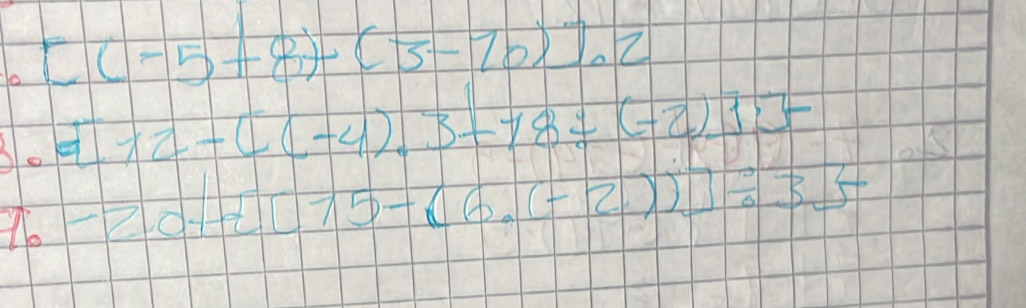 . [(-5+8)-(3-10)].2
8. {12-[(-4).3+18÷(-2)]}
7. -20+{[15-(6.(-2))]÷3}